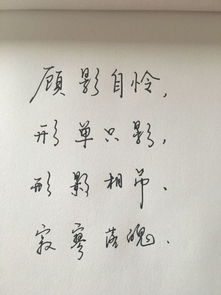 顾影自怜，
形单只影，
形影相吊、
寂寥落魄.